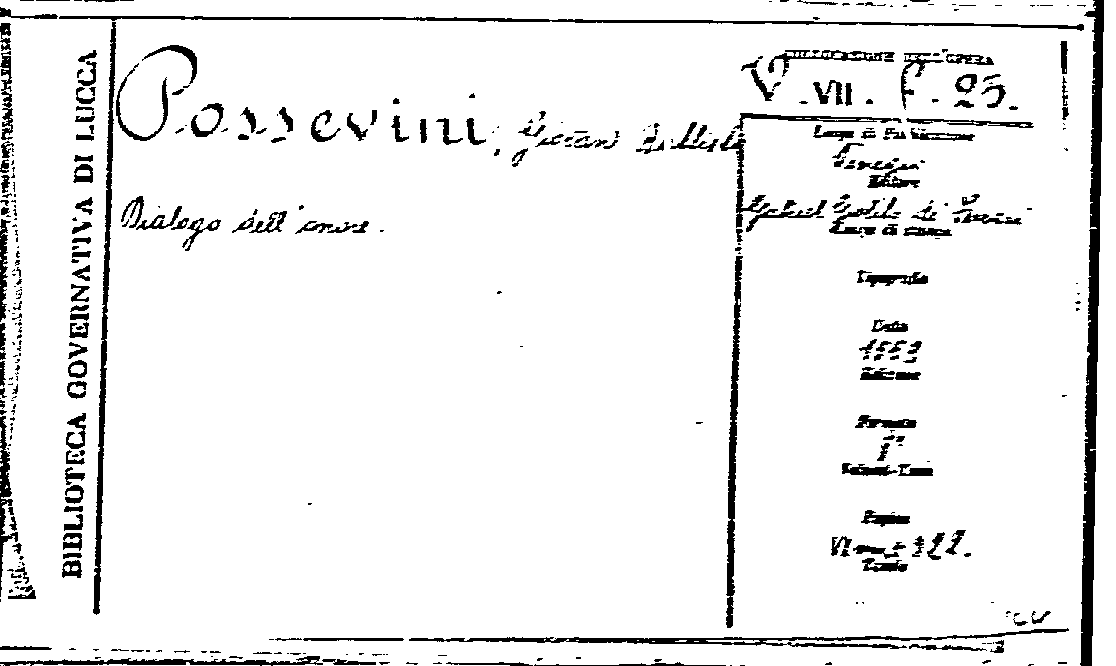 BIBLIOTECA GOVERNATIVA DI LUCCA
Possevini, Giovan Battista
Dialogo dell'onore.
COLLOCAZIONE DELL'OPERA
V. VII. F. 25.
Luogo di Pubblicazione
Venezia
Editore
Gabriel Giolito de'
Luogo di stampa
Tipografia
Data
Edizione
Formato
8°
Volumi-Tomi
Pagine